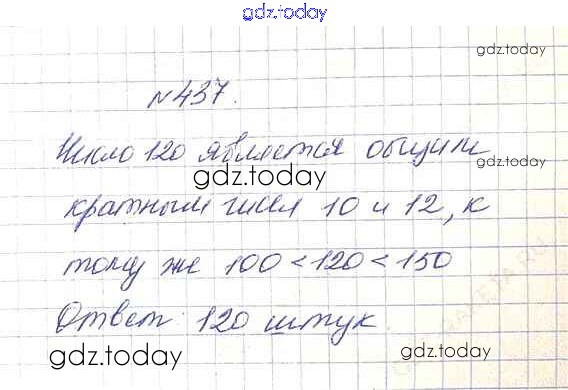 gdz.today
gdz.today
№437.
Число 120 является общим
gdz.today
gdz.today
кратным чисел 10 и 12, к
тому же 100<120<150
Ответ: 120 штук
gdz.today
gdz.today